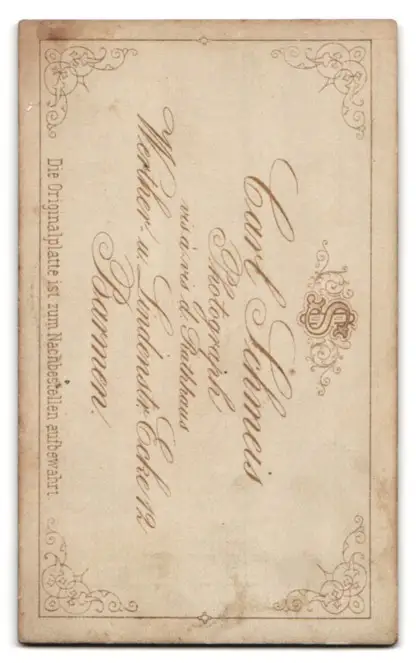 Carl Schmeis
Photograph
vis à vis d. Rathhaus
Werther- u. Lindenstr. Ecke 12
Barmen.
Die Originalplatte ist zum Nachbestellen aufbewahrt.